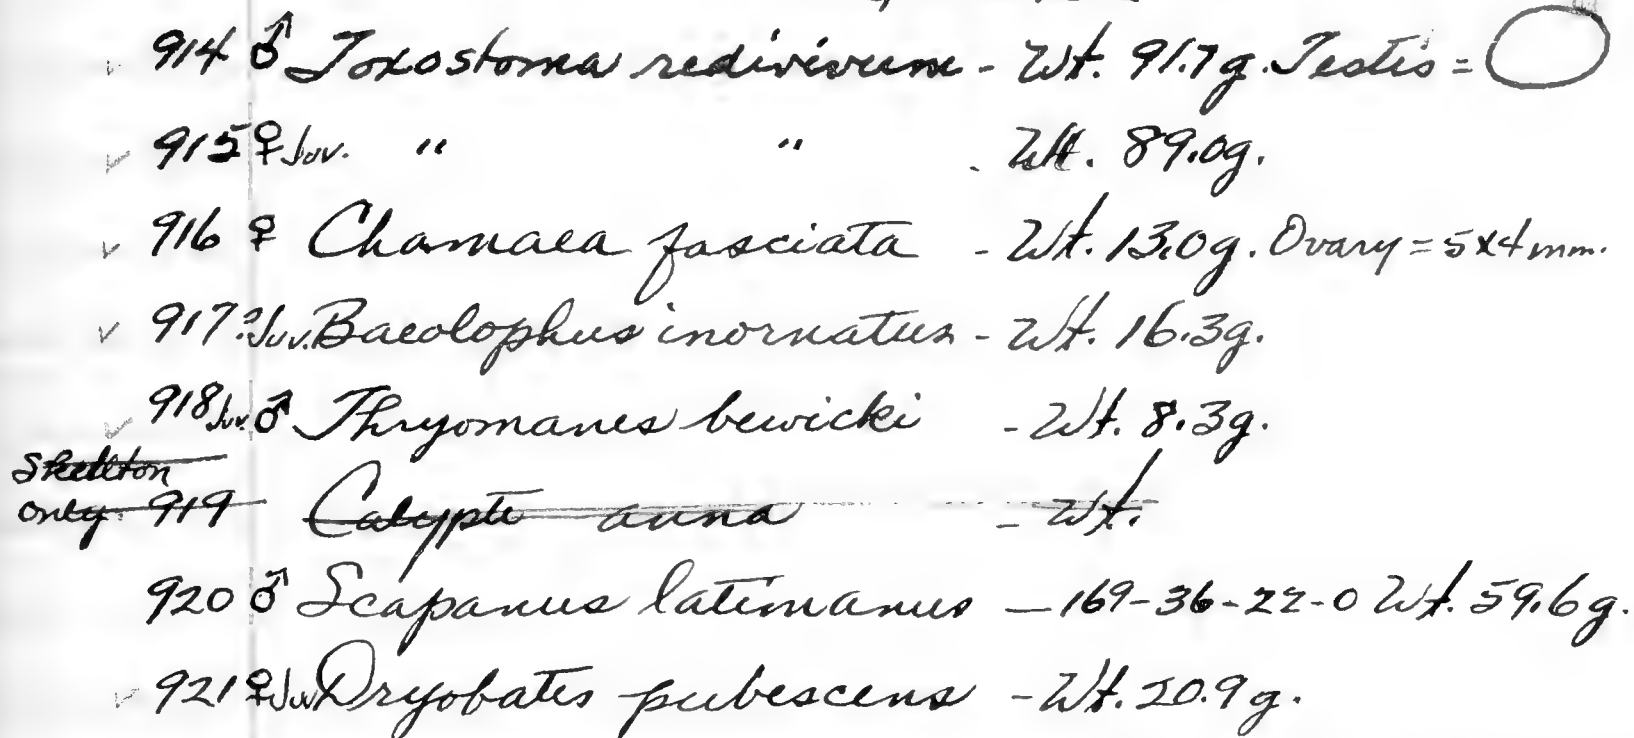 ✓ 914 ♂ Toxostoma redivivum - Wt. 91.7g. Testis =
✓ 915 ♀ Juv. " " - Wt. 89.0g.
✓ 916 ♀ Chamaea fasciata - Wt. 13.0g. Ovary = 5x4mm.
✓ 917 ? Juv. Baeolophus inornatus - Wt. 16.3g.
✓ 918 Juv. ♂ Thryomanes bewicki - Wt. 8.3g.
Skeleton
only. 919 Calypte anna - Wt.
920 ♂ Scapanus latimanus — 169-36-22-0 Wt. 59.6g.
✓ 921 ♀ Juv. Dryobates pubescens - Wt. 20.9g.